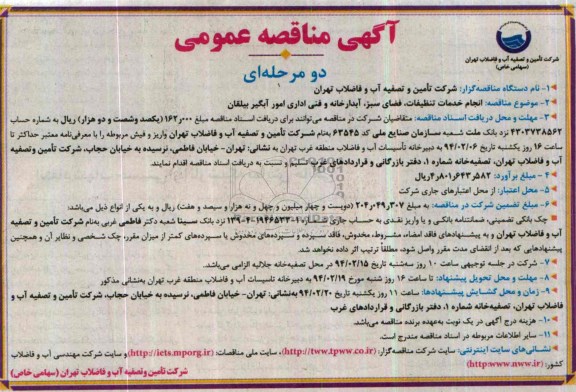 شرکت تأمین و تصفیه آب و فاضلاب تهران
(سهامی خاص)
آگهی مناقصه عمومی
دو مرحله‌ای
۱- نام دستگاه مناقصه‌گزار: شرکت تأمین و تصفیه آب و فاضلاب تهران
۲- موضوع مناقصه: انجام خدمات تنظیفات، فضای سبز، آبدارخانه و فنی اداری امور آبگیر بیلقان
۳- مهلت و محل دریافت اسناد مناقصه: متقاضیان شرکت در مناقصه می‌توانند برای دریافت اسناد مناقصه مبلغ ۱۶۲٫۰۰۰ (یکصد وشصت و دو هزار) ریال به شماره حساب
۴۳۰۳۷۳۸۵۶۲ نزد بانک ملت شعبه سازمان صنایع ملی کد ۶۳۵۴۵ به‌نام شرکت تأمین و تصفیه آب و فاضلاب تهران واریز و فیش مربوطه را با معرفی‌نامه معتبر حداکثر تا
ساعت ۱۶ روز یکشنبه تاریخ ۹۴/۰۲/۰۶ به دبیرخانه تأسیسات آب و فاضلاب منطقه غرب تهران به نشانی: تهران- خیابان فاطمی، نرسیده به خیابان حجاب، شرکت تأمین وتصفیه
آب و فاضلاب تهران، تصفیه‌خانه شماره ۱، دفتر بازرگانی و قراردادهای غرب تسلیم و نسبت به دریافت اسناد مناقصه اقدام نمایند.
۴- مبلغ برآورد: ۴٫۸۰۱٫۶۴۳٫۵۸۲ ریال
۵- محل اعتبار: از محل اعتبارهای جاری شرکت
۶- مبلغ تضمین شرکت در مناقصه: به مبلغ ۲۰۴٫۰۴۹٫۳۰۷ (دویست و چهار میلیون و چهل و نه هزار و سیصد و هفت) ریال و به یکی از انواع ذیل می‌باشد:
چک بانکی تضمینی، ضمانتنامه بانکی و یا واریز نقدی به حساب جاری شماره ۱-۱۹۴۶۵۳۳-۴-۱۳۹ نزد بانک سینا شعبه دکتر فاطمی غربی به‌نام شرکت تأمین و تصفیه
آب و فاضلاب تهران و به پیشنهادهای فاقد امضاء، مشروط، مخدوش، فاقد سپرده و سپرده‌های مخدوش یا سپرده‌های کمتر از میزان مقرر، چک شخصی و نظایر آن و همچنین
پیشنهادهایی که بعد از انقضای مدت مقرر واصل شود، مطلقاً ترتیب اثر داده نخواهد شد.
۷- شرکت در جلسه توجیهی ساعت ۱۰ روز سه‌شنبه تاریخ ۹۴/۰۲/۱۵ در محل تصفیه‌خانه جلالیه الزامی می‌باشد.
۸- مهلت و محل تحویل پیشنهاد: تا ساعت ۱۶ روز شنبه مورخ ۹۴/۰۲/۱۹ به دبیرخانه تاسیسات آب و فاضلاب منطقه غرب تهران به‌نشانی مذکور
۹- زمان و محل گشایش پیشنهادها: ساعت ۱۱ روز یکشنبه تاریخ ۹۴/۰۲/۲۰ به‌نشانی: تهران- خیابان فاطمی، نرسیده به خیابان حجاب، شرکت تأمین و تصفیه آب و
فاضلاب تهران، تصفیه‌خانه شماره ۱، دفتر بازرگانی و قراردادهای غرب
۱۰- هزینه درج آگهی در یک نوبت به‌عهده برنده مناقصه می‌باشد.
۱۱- سایر اطلاعات مربوطه در اسناد مناقصه مندرج است.
نشانی‌های سایت اینترنتی: سایت شرکت مناقصه‌گزار: (http://tww.tpww.co.ir)، سایت ملی مناقصات: (http://iets.mporg.ir) و سایت شرکت مهندسی آب و فاضلاب
کشور: (http:www.nww.ir)
شرکت تأمین وتصفیه آب و فاضلاب تهران (سهامی خاص)